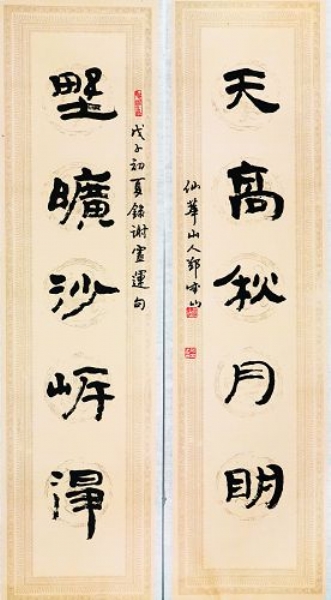 天高秋月明
仙華山人鄭山
戊子初夏錄謝靈運句
野曠沙岸淨